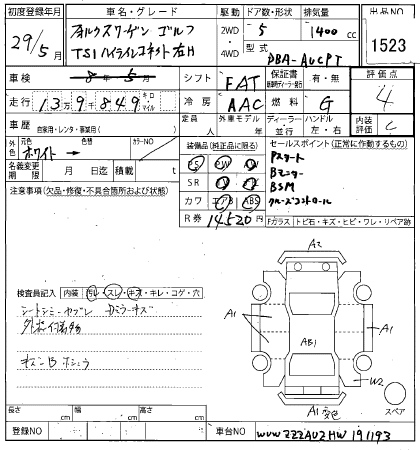 初度登録年月
29/5月
車名・グレード
フォルクスワーゲン ゴルフ
TSIハイラインコネクト 右H
駆動
2WD
4WD
ドア数・形状
5
排気量
1400 cc
型式
DBA-AUCPT
出品NO
1523
車検
8年5月
シフト
FAT
保証書
有・無
評価点
4
走行
13万9千849
キロ
マイル
冷房
AAC
燃料
G
内装評価
C
車歴
自家用・レンタ・事業用( )
定員
人
外車モデル
年
ディーラー
並行
ハンドル
左・右
外色
元色
色替
カラーNO
ホワイト→
名義変更期限
月 日迄
積載
t
装備品(純正品に限る)
PS PW AW
SR
カワ エアB ABS
R券 14520円
セールスポイント(正常に作動するもの)
Pスタート
Bモニター
BSM
クルーズコントロール
注意事項(欠品・修復・不具合箇所および状態)
Fガラス トビ石・キズ・ヒビ・ワレ・リペア跡
検査員記入
内装
汚レ・スレ・キズ・キレ・コゲ・穴
シートシミ・ヤブレ Dミラーキズ
A2
A1
AB1
A1
W2
A1
スペア
長さ cm
幅 cm
高さ cm
登録NO
車台NO
WVWZZZAUZHW191193